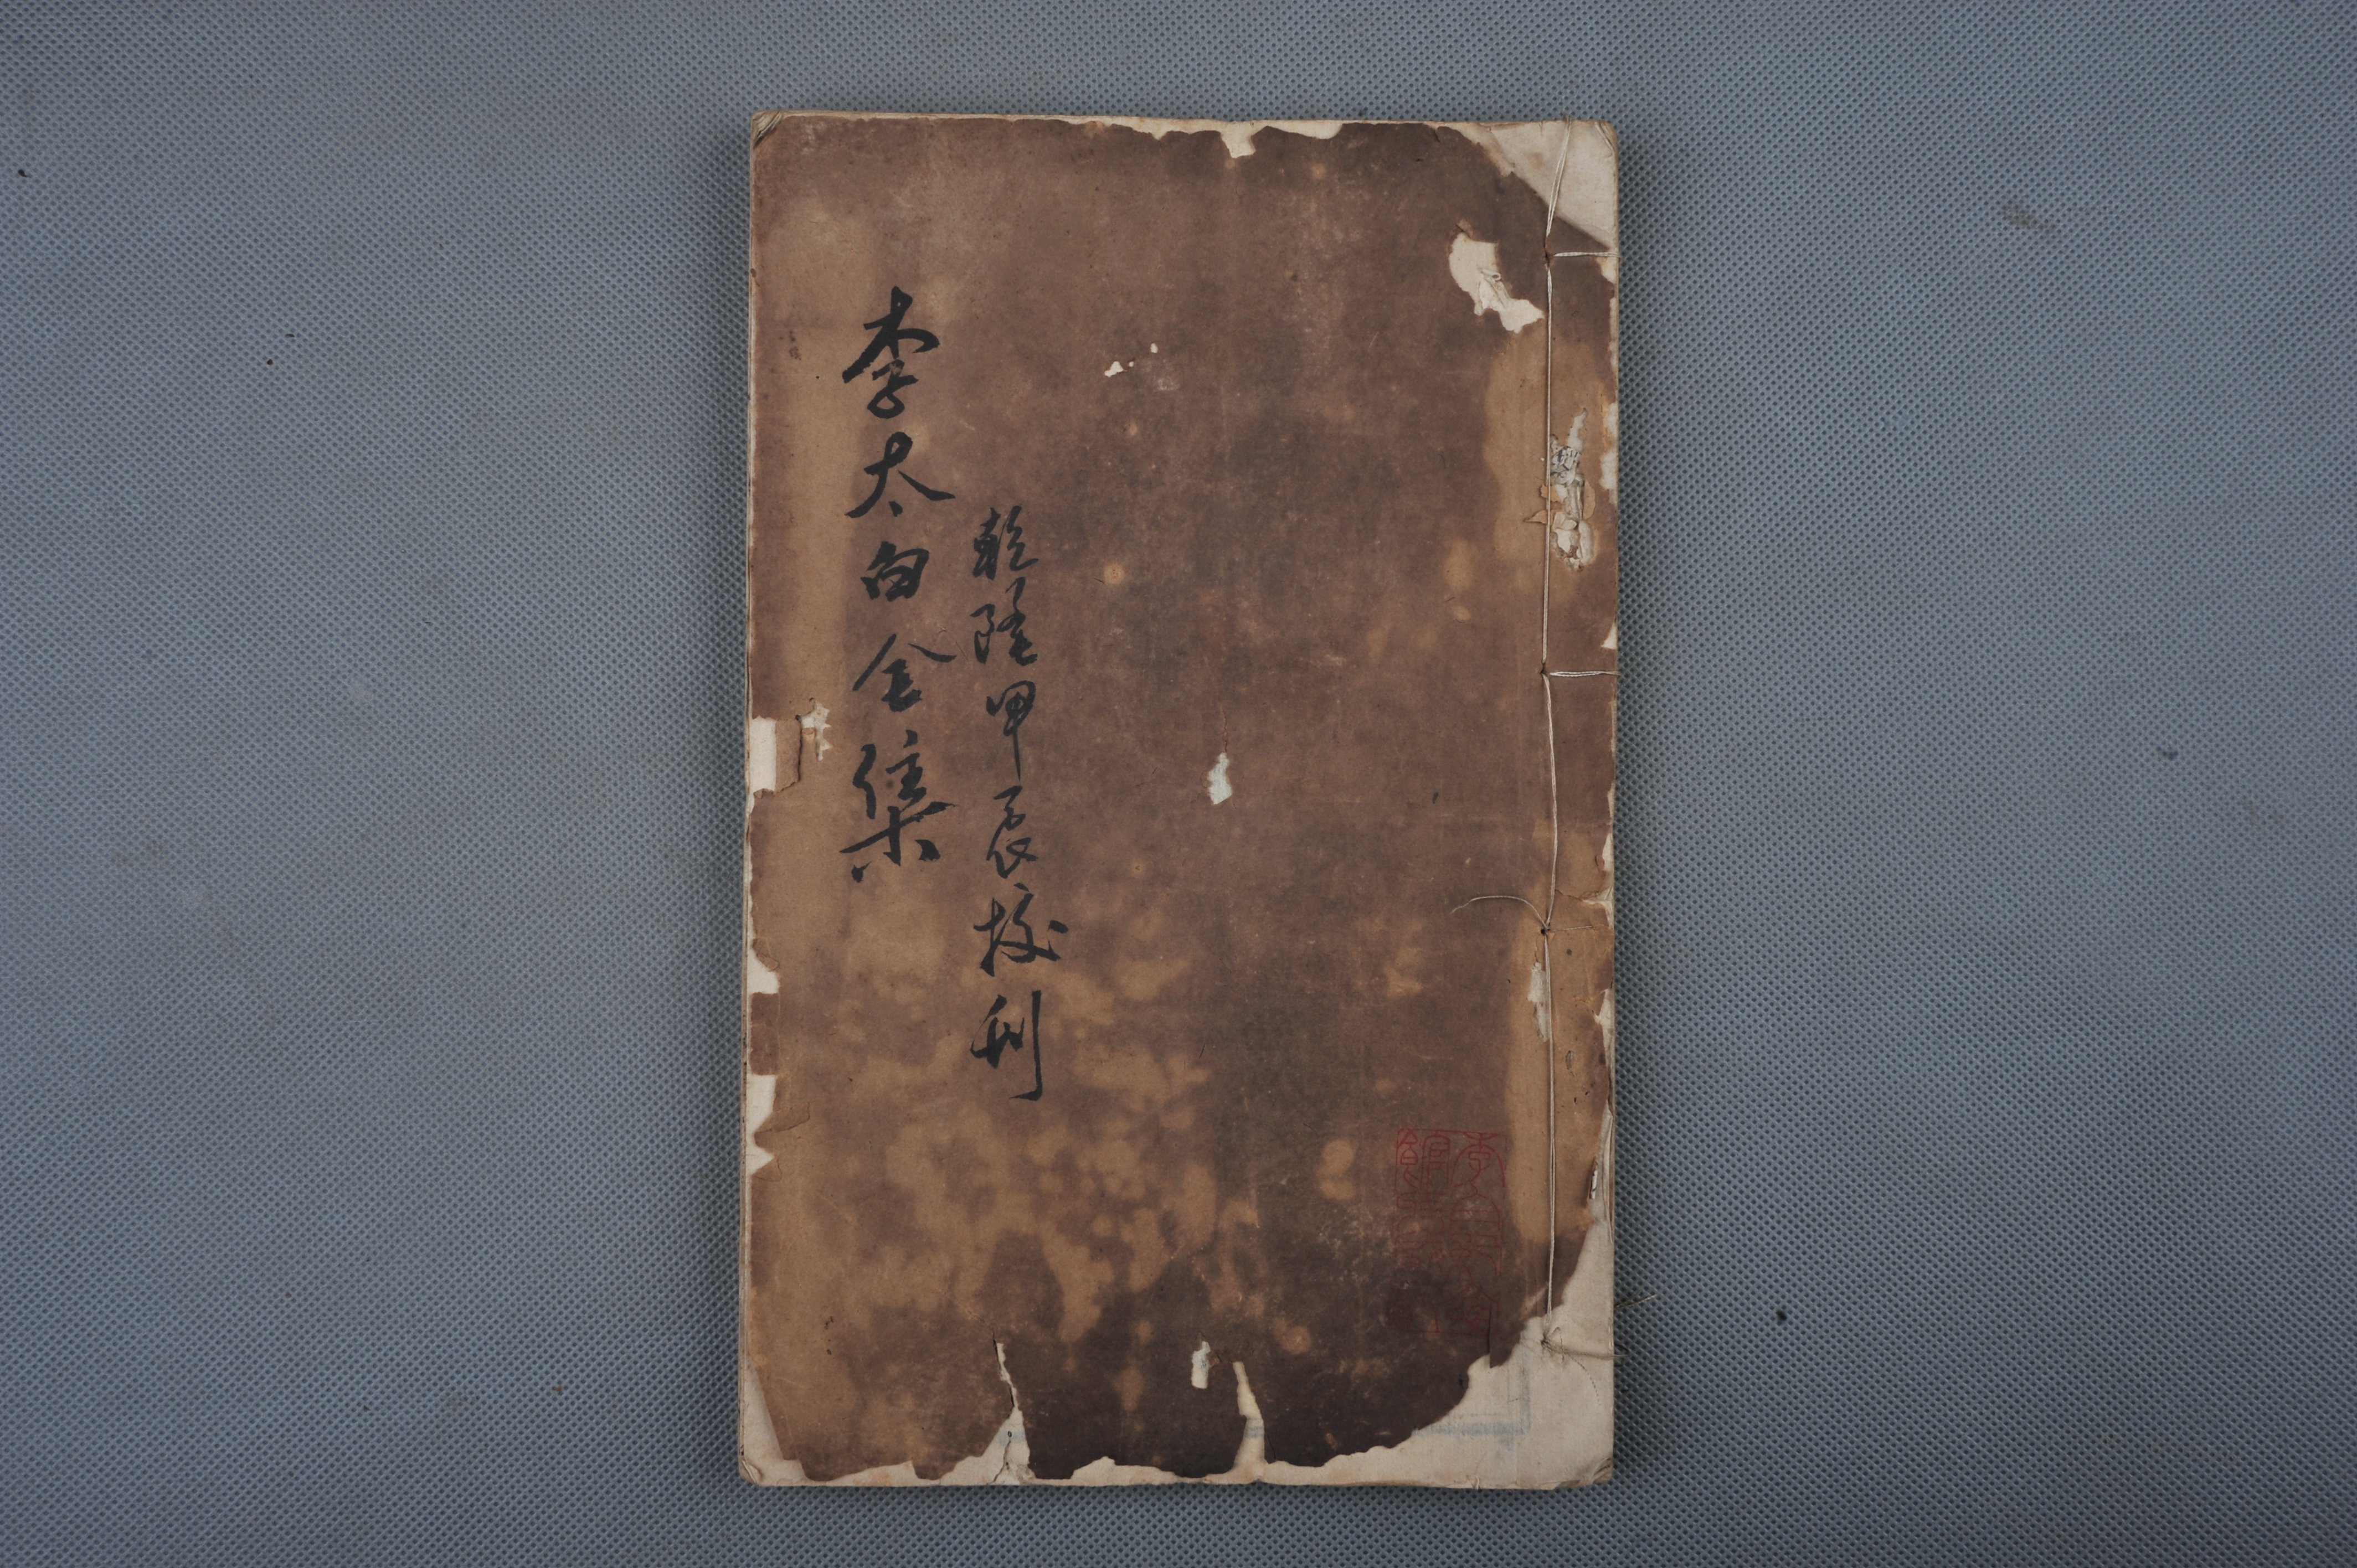 乾隆甲辰校刊
李太白全集